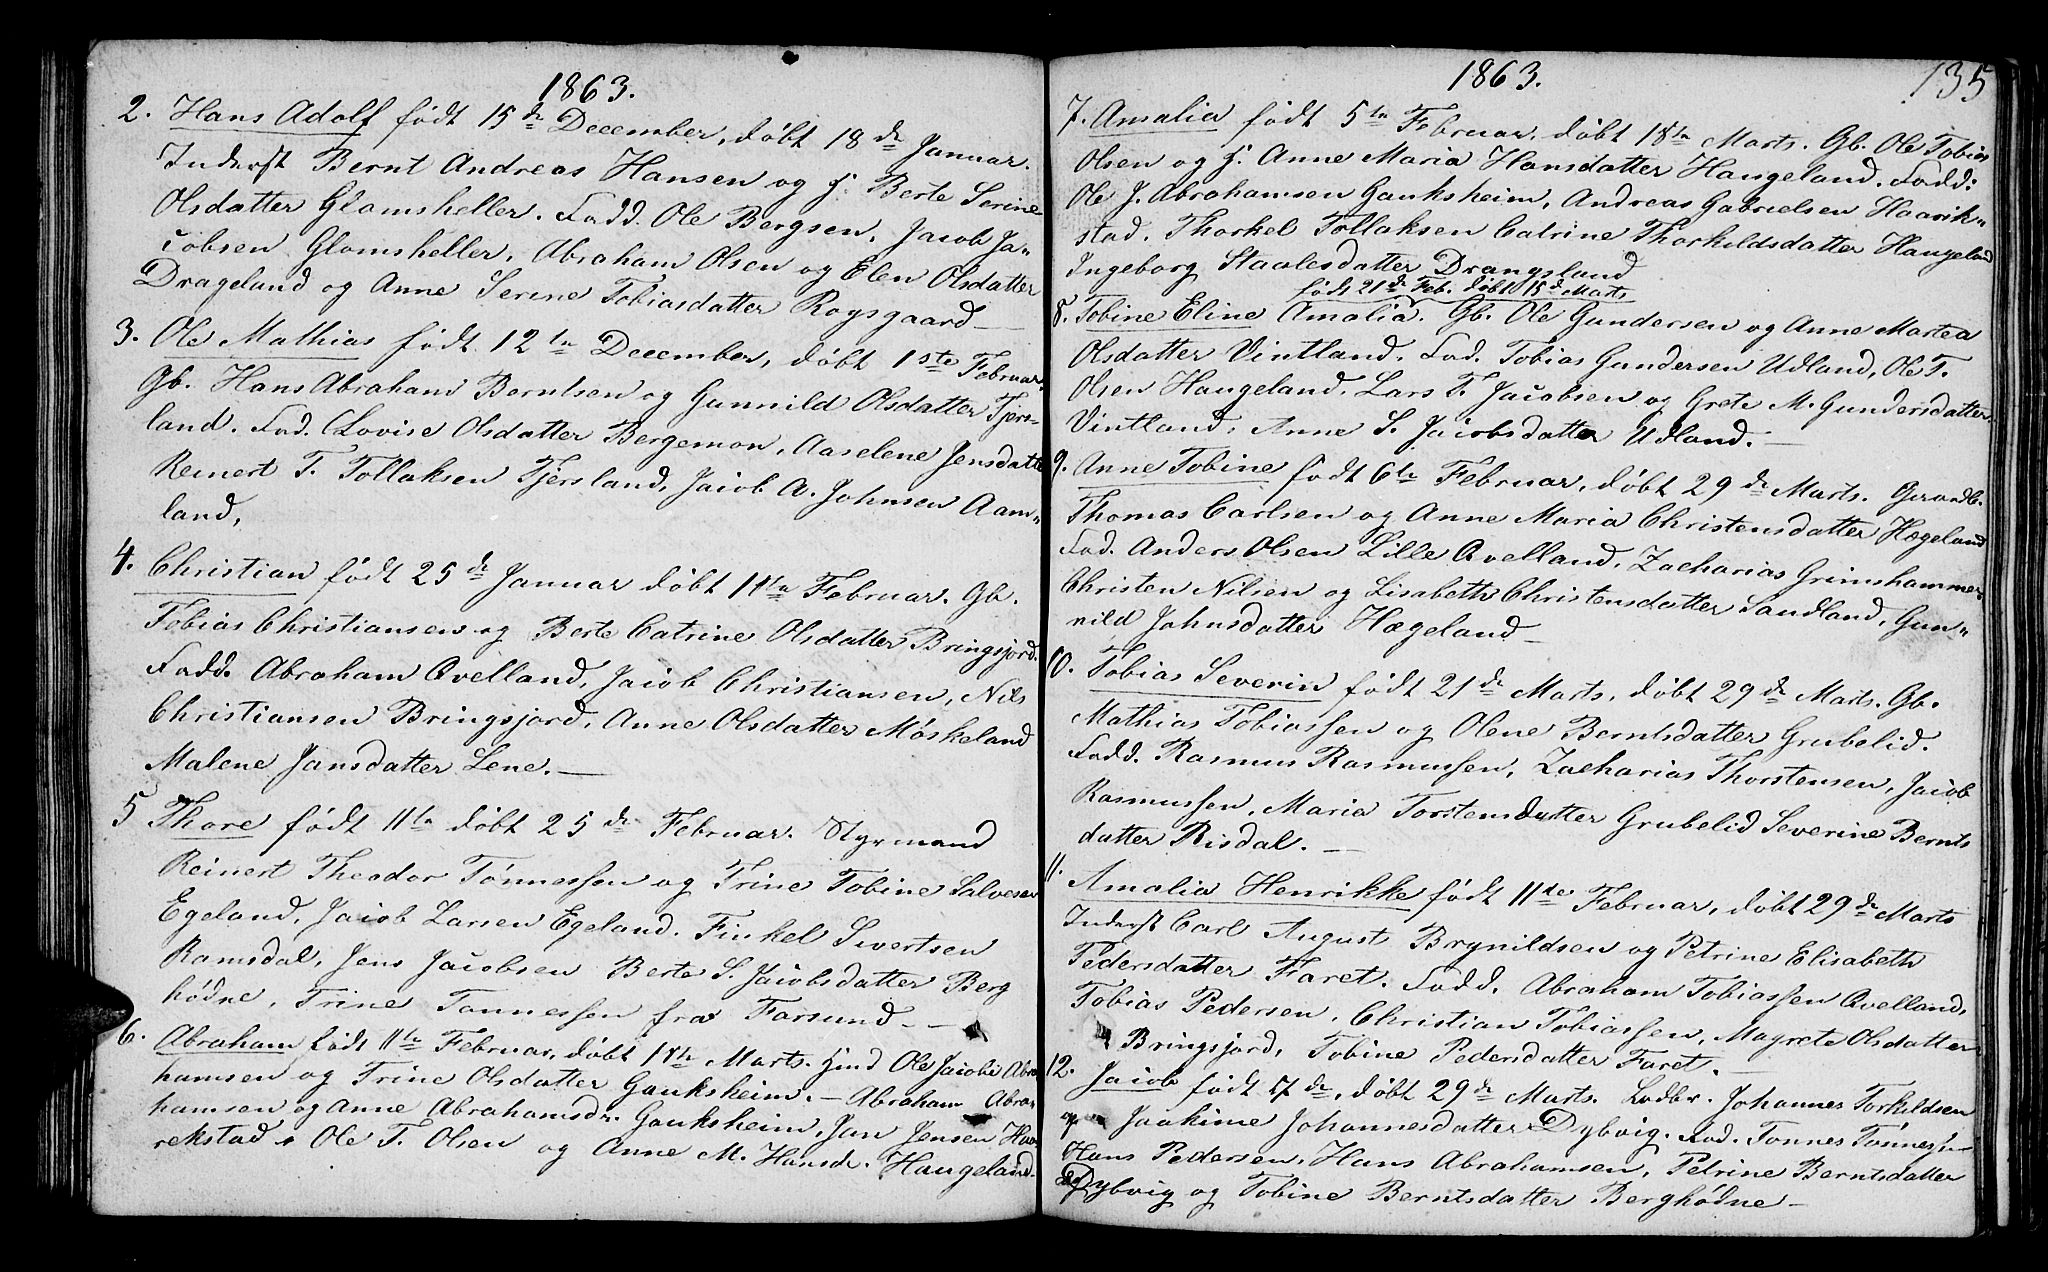 1863.
2. Hans Adolf født 15de December, døbt 18de Januar.
Inderst Bernt Andreas Hansen og h. Berte Serine
Olsdatter Glomsheller. Fadd. Ole Bergsen, Jacob Ja-
cobsen Glomsheller, Abraham Olsen og Elen Olsdatter
Drageland og Anne Serine Tobiasdatter Roysgaard —
3. Ole Mathias født 12te December, døbt 1ste Februar.
Gb. Hans Abraham Berntsen og Gunnild Olsdatter Tjers-
land. Fad. Lovise Olsdatter Bergemon, Aaselene Jensdatter
Reinert T. Tollaksen Tjersland, Jacob A. Johnsen Aam-
land,
4. Christian født 25de Januar døbt 11te Februar. Gb.
Tobias Christiansen og Berte Catrine Olsdatter Bringsjord.
Fadd. Abraham Qvelland, Jacob Christiansen, Nils
Christiansen Bringsjord, Anne Olsdatter Møskeland
Malene Jansdatter Lene. —
5 Thore født 11te døbt 25de Februar. Styrmand
Reinert Theodor Tønnessen og Trine Tobine Salvesen
Egeland, Jacob Larsen Egeland. Finkel Sivertsen
Ramsdal, Jens Jacobsen Berte S. Jacobsdatter Berg
hødne, Trine Tonnessen fra Farsund —
6. Abraham født 11te Februar, døbt 18te Marts. Gmd Ole Jacobi Abra
hamsen og Trine Olsdatter Gauksheim. — Abraham Abra
hamsen og Anne Abrahamsdr. Gauksheim, Jan Jensen Haa
rekstad, Ole T. Olsen og Anne M. Hansdr. Haugeland.
1863. 135
7. Amalia født 5te Februar, døbt 18te Marts. Gb. Ole Tobias
Olsen og h. Anne Maria Hansdatter Haugeland. Fadd:
Ole J. Abrahamsen Gauksheim, Andreas Gabrielsen Haarik-
stad. Thorkel Tollaksen Catrine Thorkildsdatter Haugeland
Ingeborg Staalesdatter Drangsland
født 21de Feb. døbt 15de Marts
8. Tobine Eline Amalia. Gb. Ole Gundersen og Anne Martea
Olsdatter Vintland. Fad. Tobias Gundersen Udland, Ole T.
Olsen Haugeland, Lars T. Jacobsen og Grete M. Gundersdatter
Vintland, Anne S. Jacobsdatter Udland. —
9. Anne Tobine født 6te Februar, døbt 29de Marts. Grandb.
Thomas Carlsen og Anne Maria Christensdatter Hægeland
Fad. Anders Olsen Lille Qvelland, Zacharias Grimshammer
Christen Nilsen og Lisabeth Christensdatter Sandland, Gun-
nild Johnsdatter Hægeland —
10. Tobias Severin født 21de Marts, døbt 29de Marts. Gb.
Mathias Tobiassen og Olene Berntsdatter Grubelid.
Fadd. Rasmus Rasmussen, Zacharias Thorstensen, Jacob
Rasmussen, Maria Torstensdatter Grubelid Severine Bernts
datter Risdal. —
11. Amalia Henrikke født 11te Februar, døbt 29de Marts
Inderst Carl August Brynildsen og Petrine Elisabeth
Pedersdatter Faret. Fadd. Abraham Tobiassen Qvelland,
Tobias Pedersen, Christian Tobiassen, Magrete Olsdatter
Bringsjord, Tobine Pedersdatter Faret. —
12. Jacob født 7de, døbt 29de Marts. Lodbr. Johannes Torkildsen
og Joakime Johannesdatter Dybvig. Fad. Tonnes Tønnesen
Hans Pedersen, Hans Abrahamsen, Petrine Berntsdatter
Dybvig og Tobine Berntsdatter Berghødne —